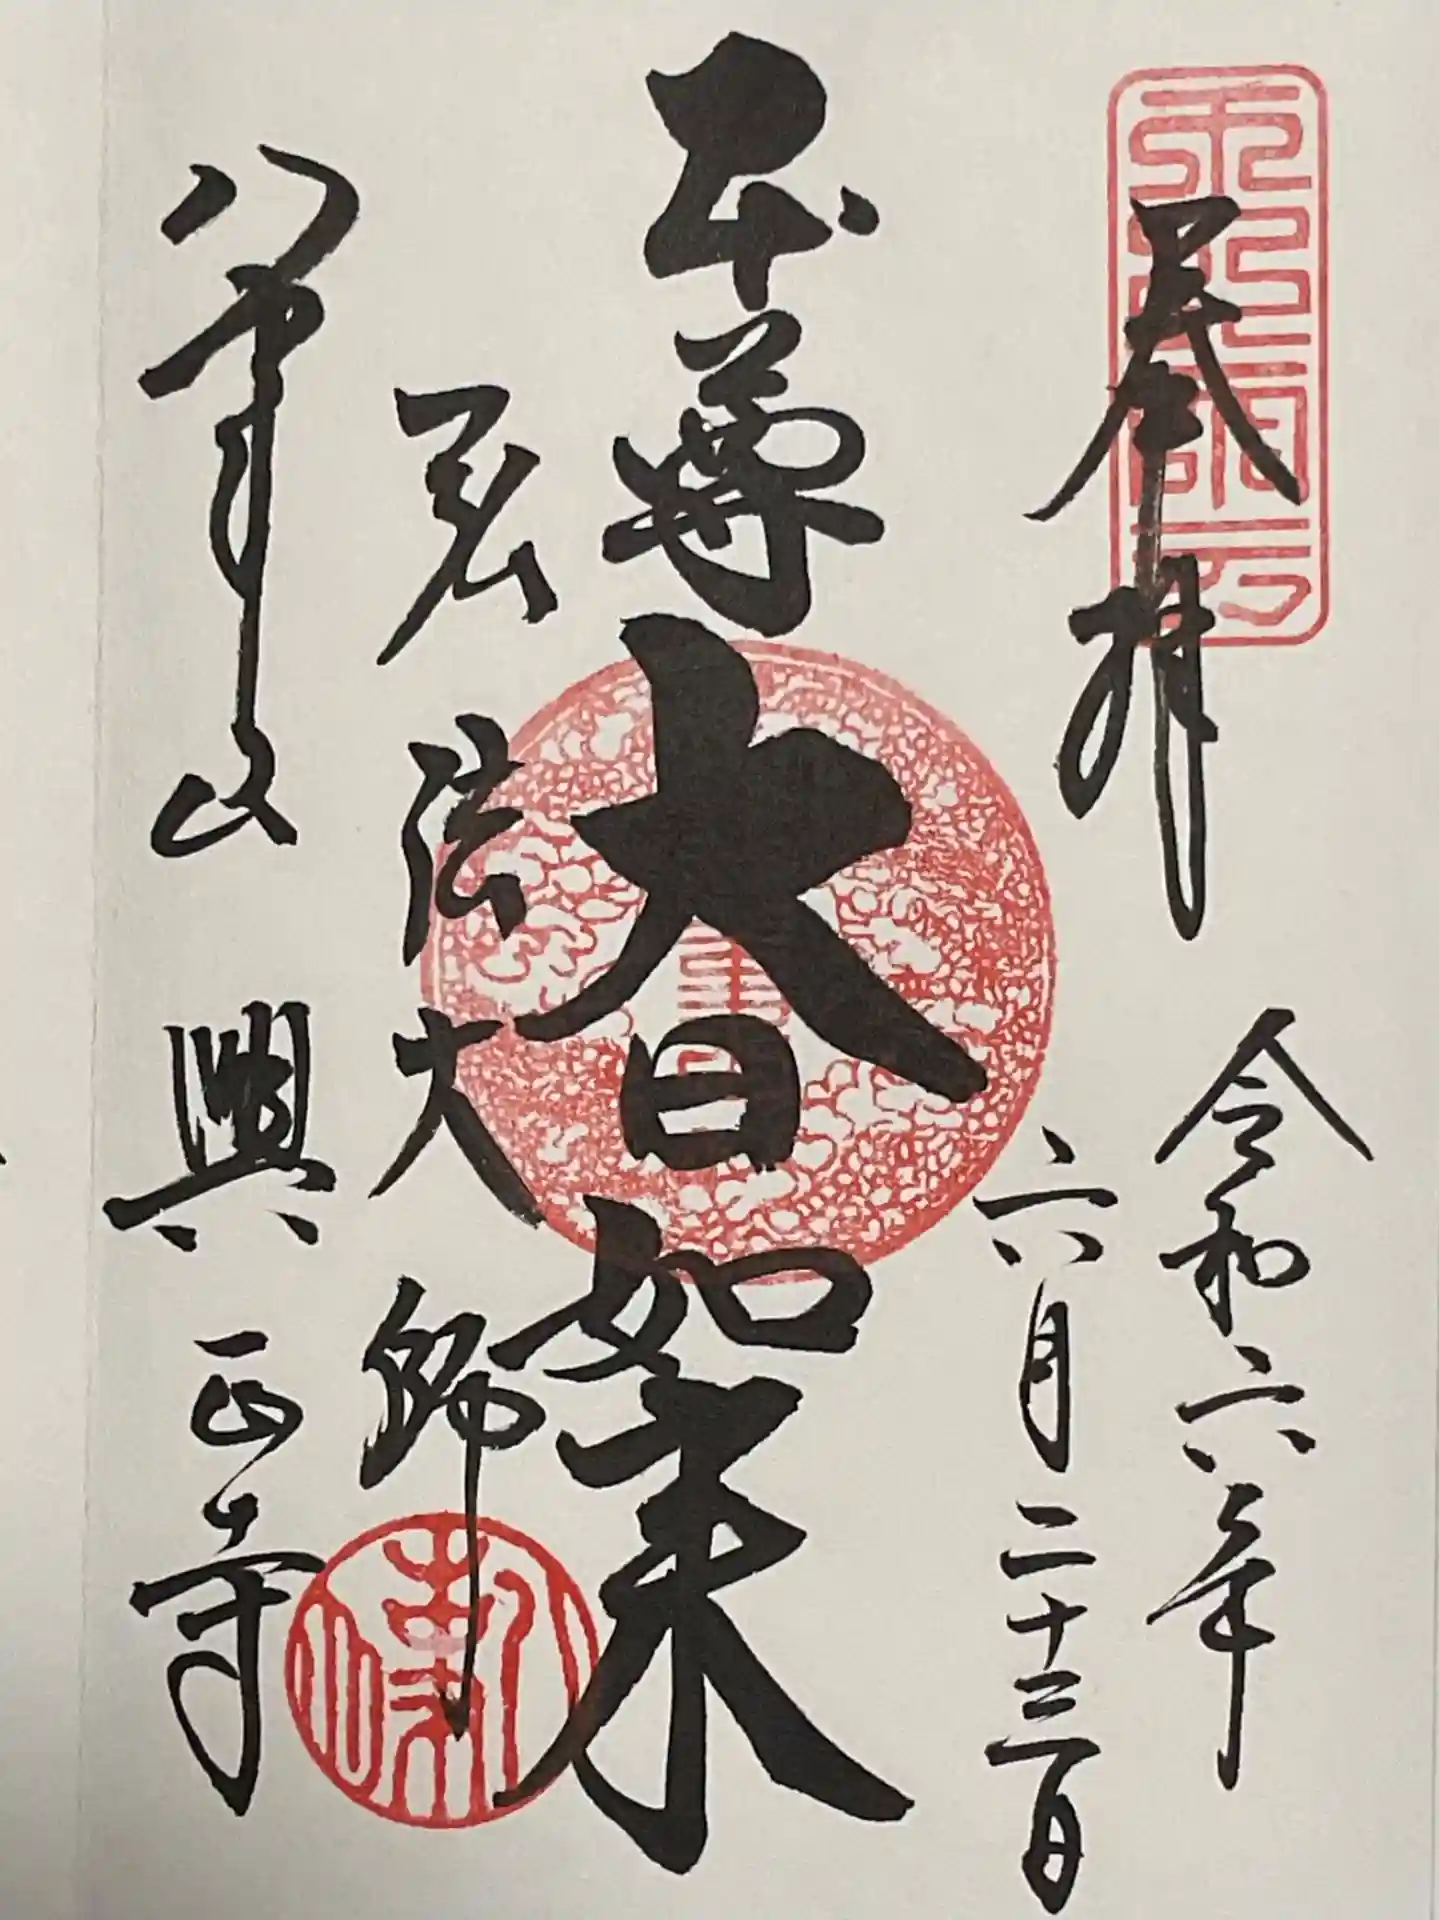 奉拝
令和六年
六月二十三日
本尊大日如来
弘法大師
八事山 興正寺